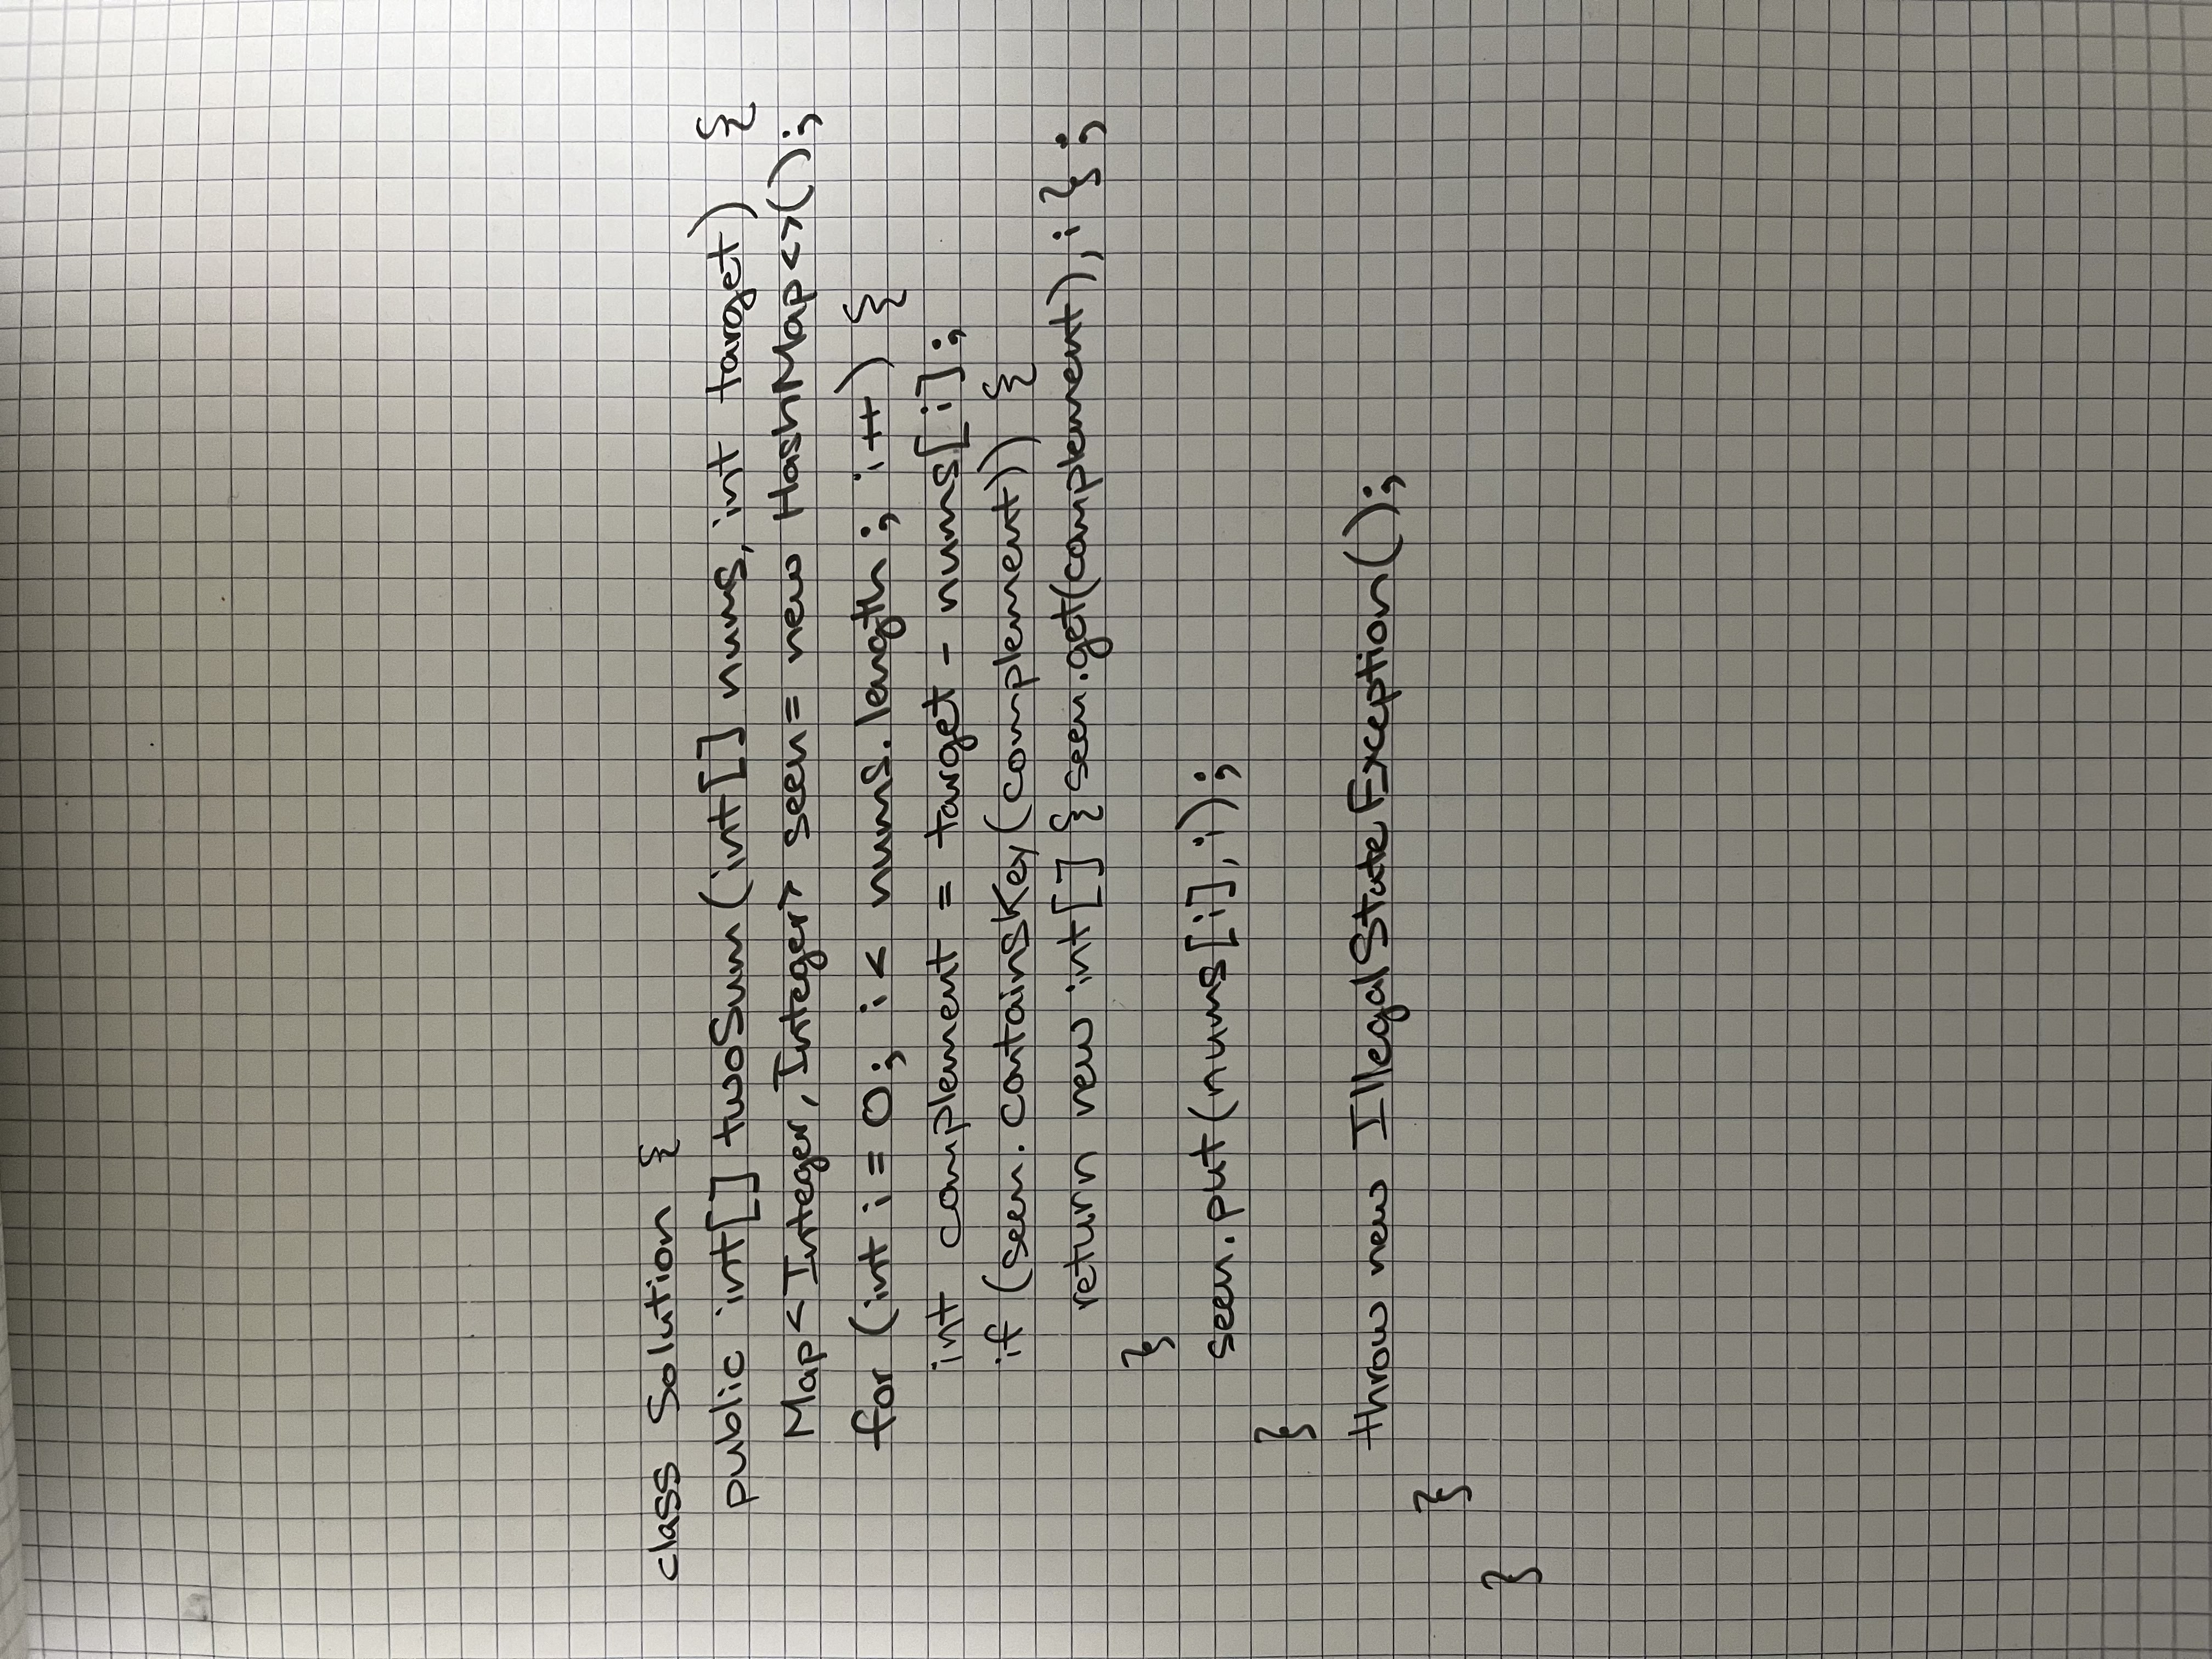 class Solution {
public int[] twoSum(int[] nums, int target) {
Map<Integer, Integer> seen = new HashMap<>();
for (int i = 0; i < nums.length; i++) {
int complement = target - nums[i];
if (seen.containsKey(complement)) {
return new int[] {seen.get(complement), i };
}
seen.put(nums[i], i);
}
throw new IllegalStateException();
}
}